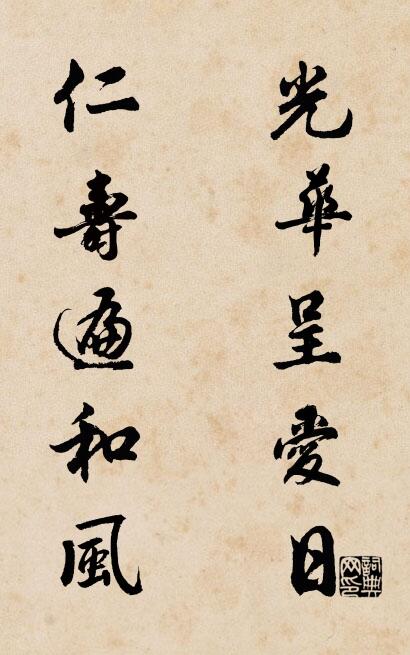 光華呈愛日
仁壽遍和風
詞典網印